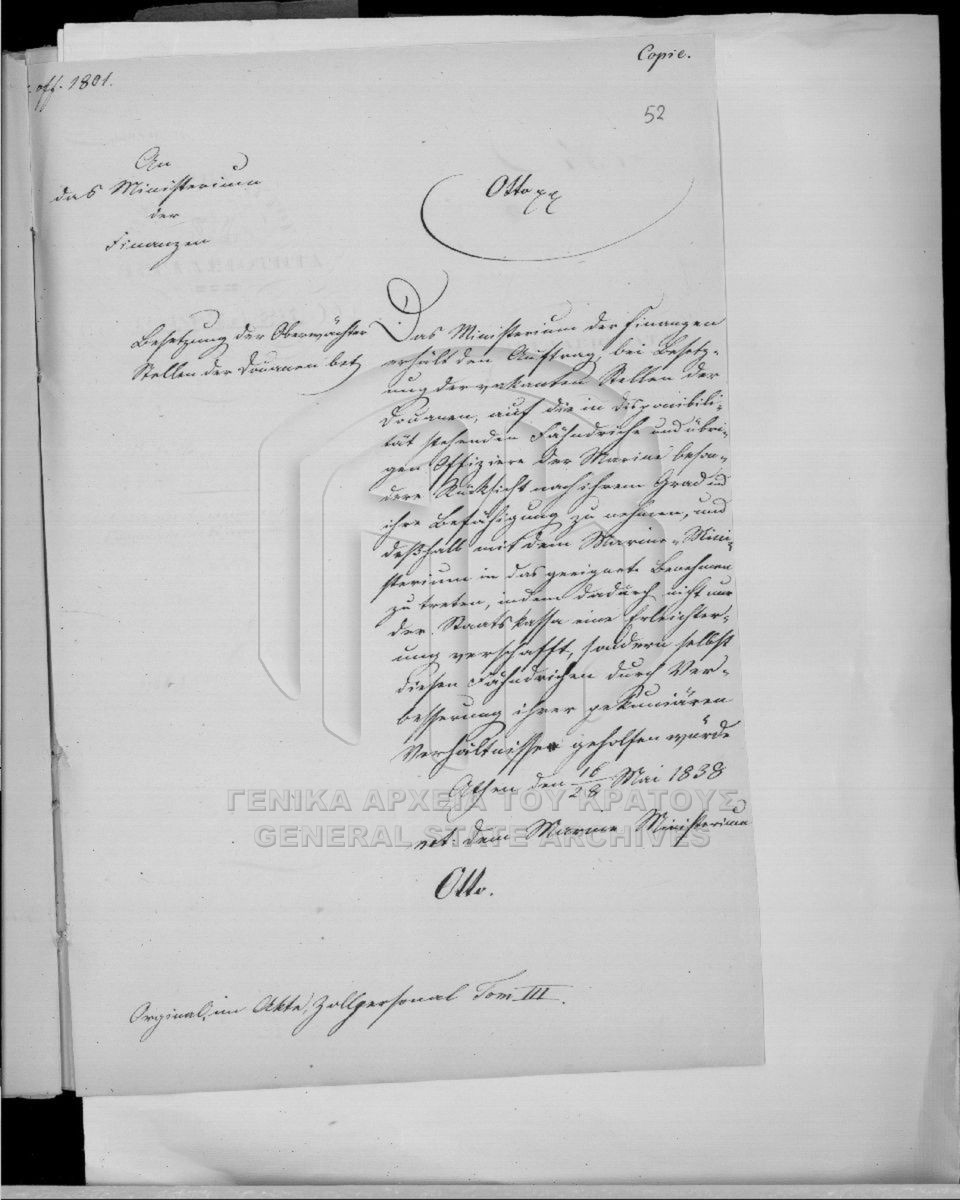 off. 1801.
Copie.
52
An
das Ministerium
der
Finanzen
Otto
Besetzung der Oberwächter
Stellen der Douanen betr.
Das Ministerium der Finanzen
erhält den Auftrag, bei Besetz-
ung der vakanten Stellen der
Douanen, auf die in Disponibili-
tät stehenden Fähndriche und übri-
gen Offiziere der Marine beson-
dere Rücksicht nach ihrem Grad und
ihre Befähigung zu nehmen, und
deßhalb mit dem Marine-Mini-
sterium in das geeignete Benehmen
zu treten, indem dadurch nicht nur
der Staatskassa eine Erleichter-
ung verschafft, sondern selbst
diesen Fähndrichen durch Ver-
besserung ihrer pekuniären
Verhältnisse geholfen würde
Athen den 16/28 Mai 1838
dem Marine Ministerium
Otto.
Orginal, im Akte, Zollpersonal Tom III.
ΓΕΝΙΚΑ ΑΡΧΕΙΑ ΤΟΥ ΚΡΑΤΟΥΣ
GENERAL STATE ARCHIVES